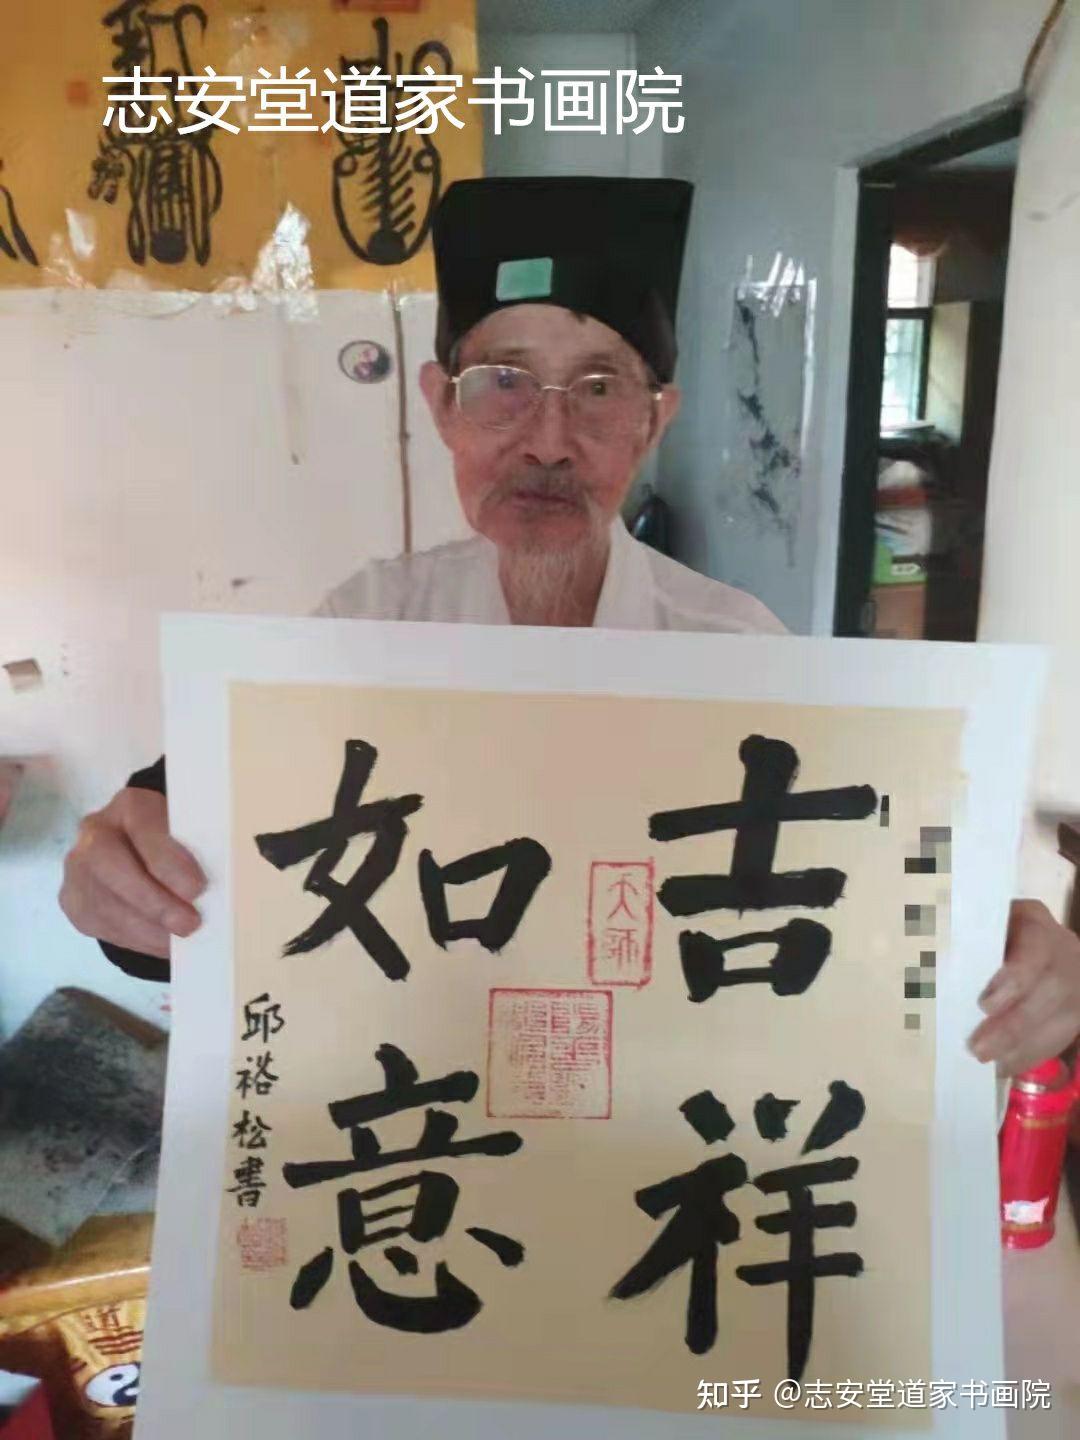 志安堂道家书画院
吉祥
如意
天师
邱裕松書
道
知乎 @志安堂道家书画院